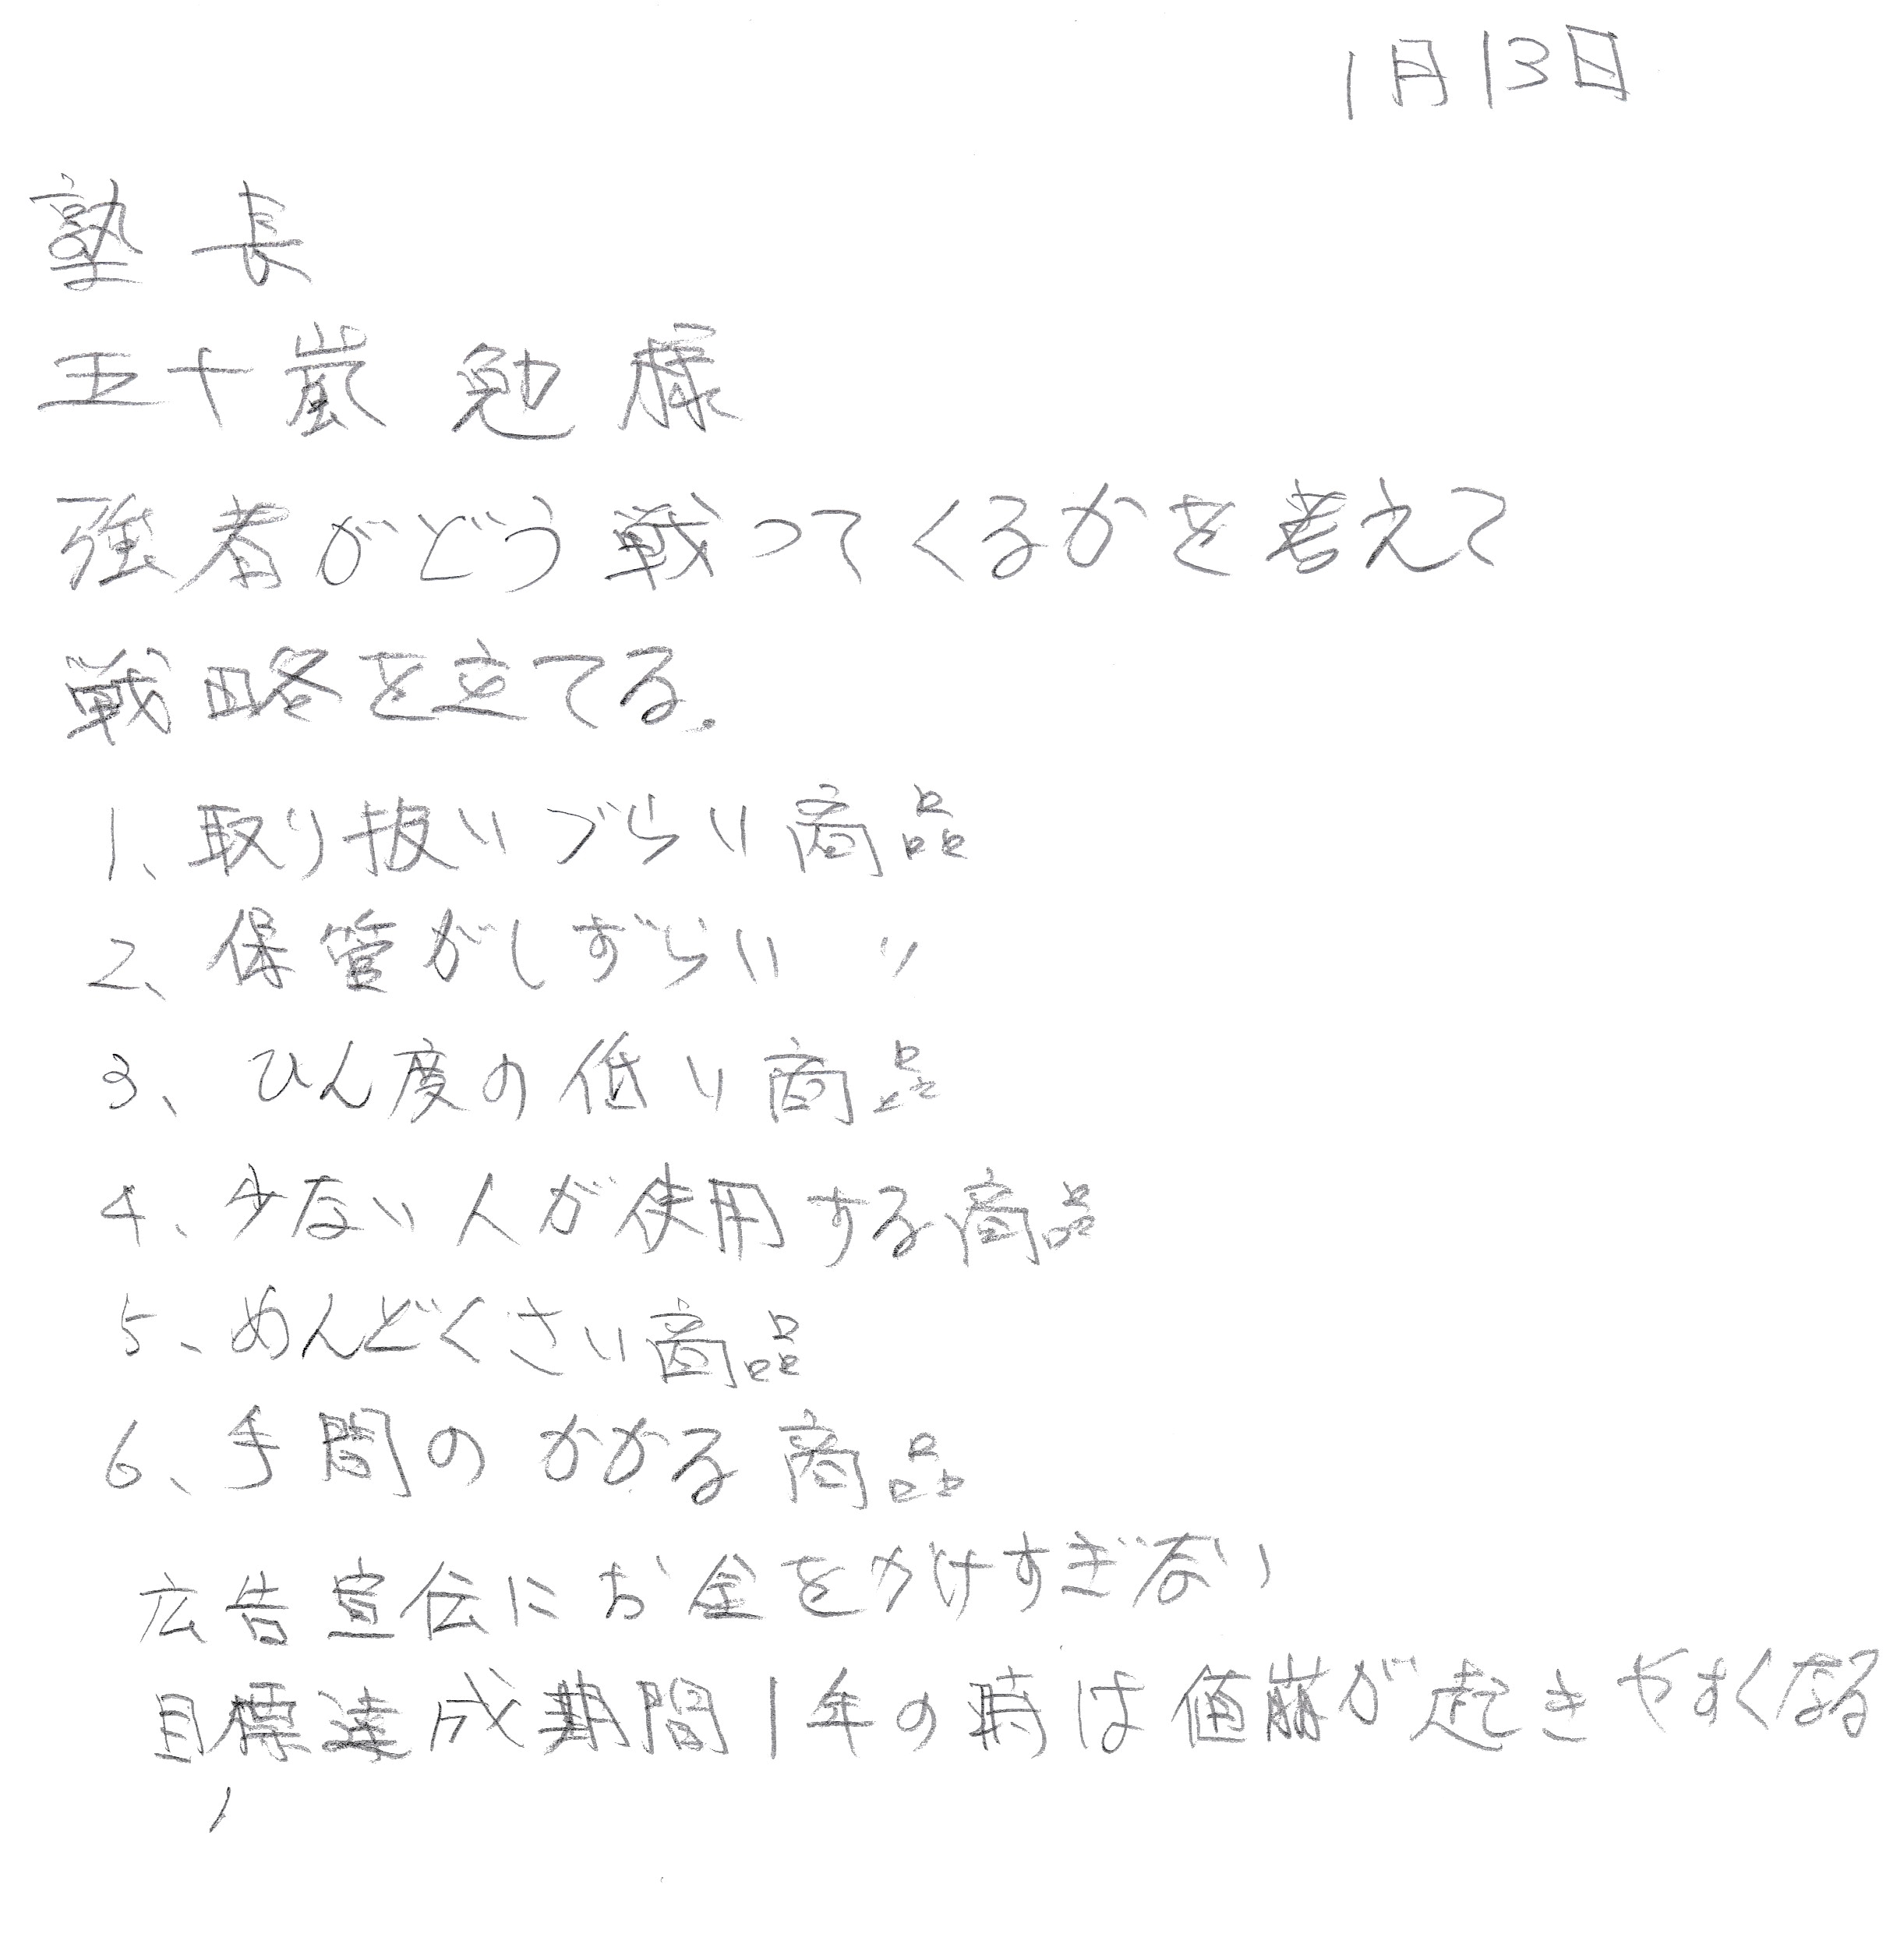 1月13日
塾長
五十嵐勉様
強者がどう戦ってくるかを考えて
戦略を立てる。
1、取り扱いづらい商品
2、保管がしずらい 〃
3、ひん度の低い商品
4、少ない人が使用する商品
5、めんどくさい商品
6、手間のかかる商品
広告宣伝にお金をかけすぎない
目標達成期間1年の時は値崩が起きやすくなる